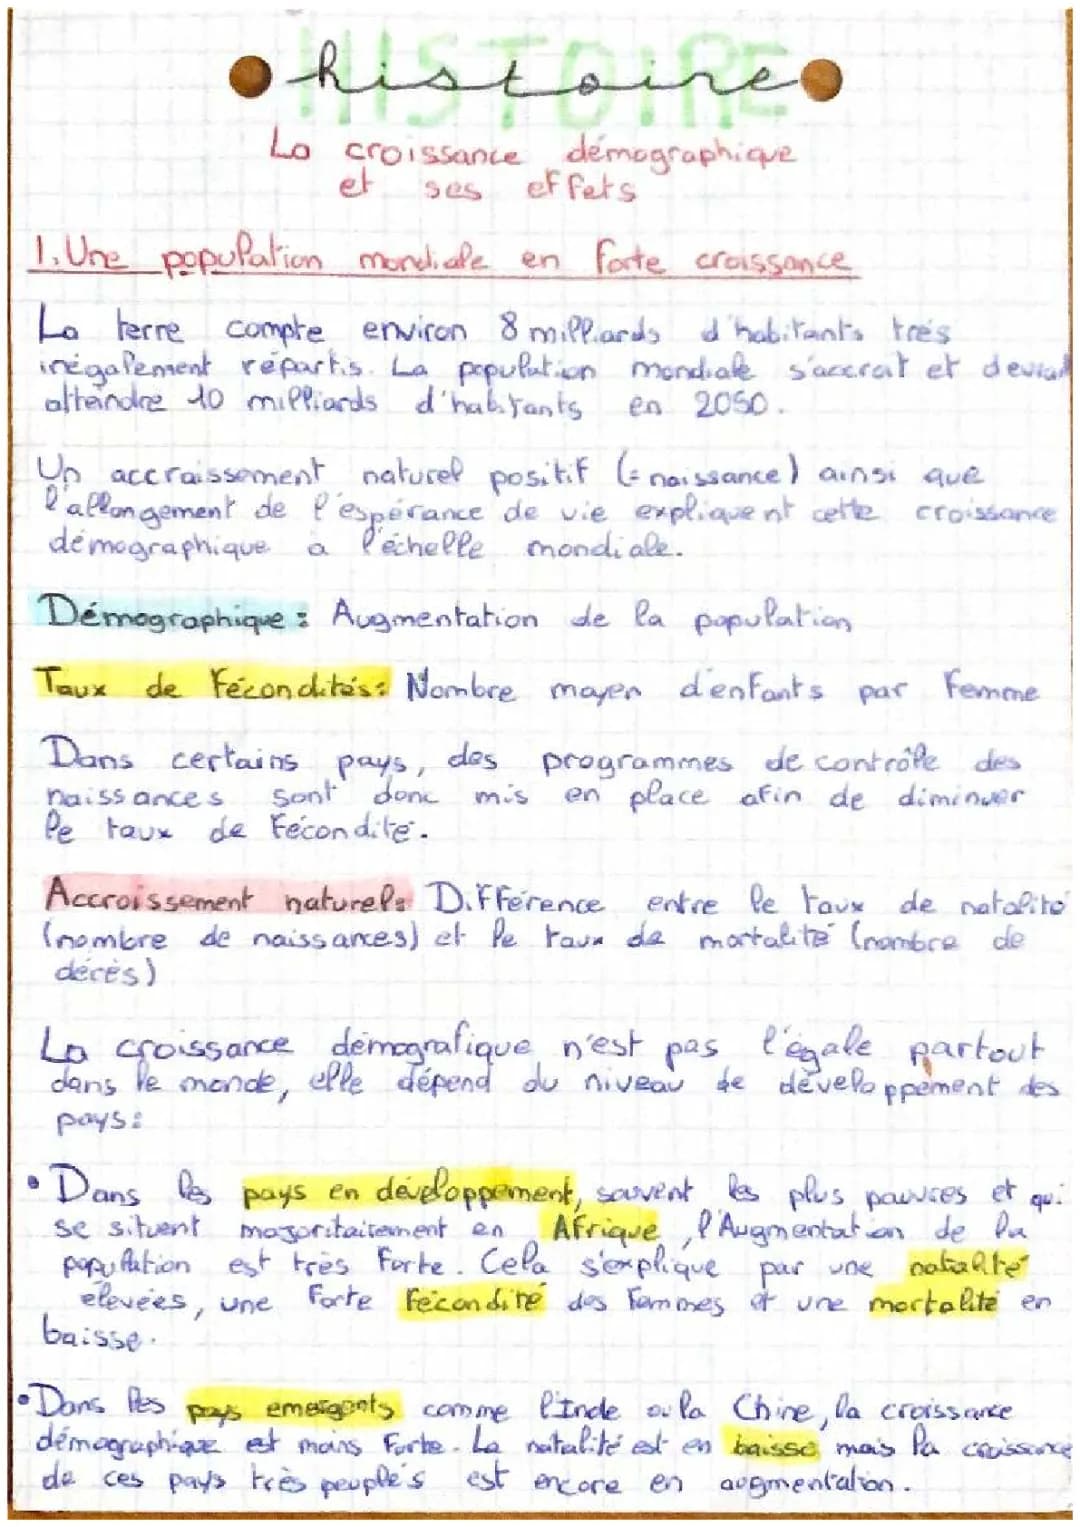 HISTOIRE
histoire
La croissance démographique
et ses effets
1. Une population mondiale en forte croissance
La terre compte environ 8 milliards d'habitants très
inégalement répartis. La population mondiale s'accroit et devrait
atteindre 10 milliards d'habitants en 2050.
Un accroissement naturel positif (= naissance) ainsi que
l'allongement de l'espérance de vie expliquent cette croissance
démographique à l'échelle mondiale.
Démographique : Augmentation de la population
Taux de Fécondités : Nombre moyen d'enfants par Femme
Dans certains pays, des programmes de contrôle des
naissances sont donc mis en place afin de diminuer
le taux de Fécondité.
Accroissement naturel : Différence entre le taux de natalité
(nombre de naissances) et le taux de mortalité (nombre de
décès)
La croissance démografique n'est pas l'égale partout
dans le monde, elle dépend du niveau de développement des
pays :
• Dans les pays en développement, souvent les plus pauvres et qui
se situent majoritairement en Afrique, l'Augmentation de la
population est très Forte. Cela s'explique par une natalité
élevées, une Forte Fécondité des Femmes et une mortalité en
baisse.
• Dans les pays emergents comme l'Inde ou la Chine, la croissance
démographique est moins Forte. La natalité est en baisse mais la croissance
de ces pays très peuplés est encore en augmentation.